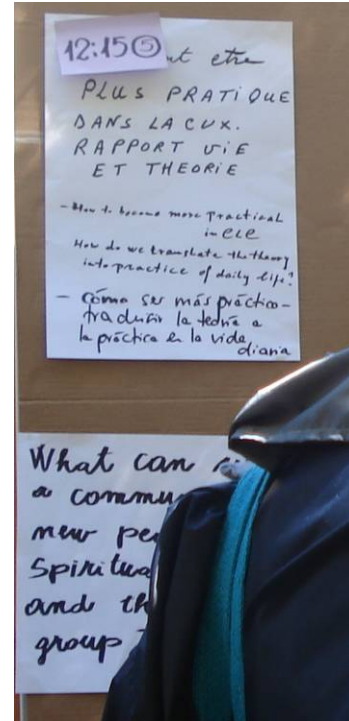 12:15 ⑤
ut etre
PLUS PRATIQUE
DANS LA CUX.
RAPPORT VIE
ET THEORIE
- How to become more practical
in ECE
How do we translate the theory
into practice of daily life?
- cómo ser más práctico -
traducir la teoría a
la práctica en la vida
diaria
What can
a commu
new pe
Spiritua
and th
group